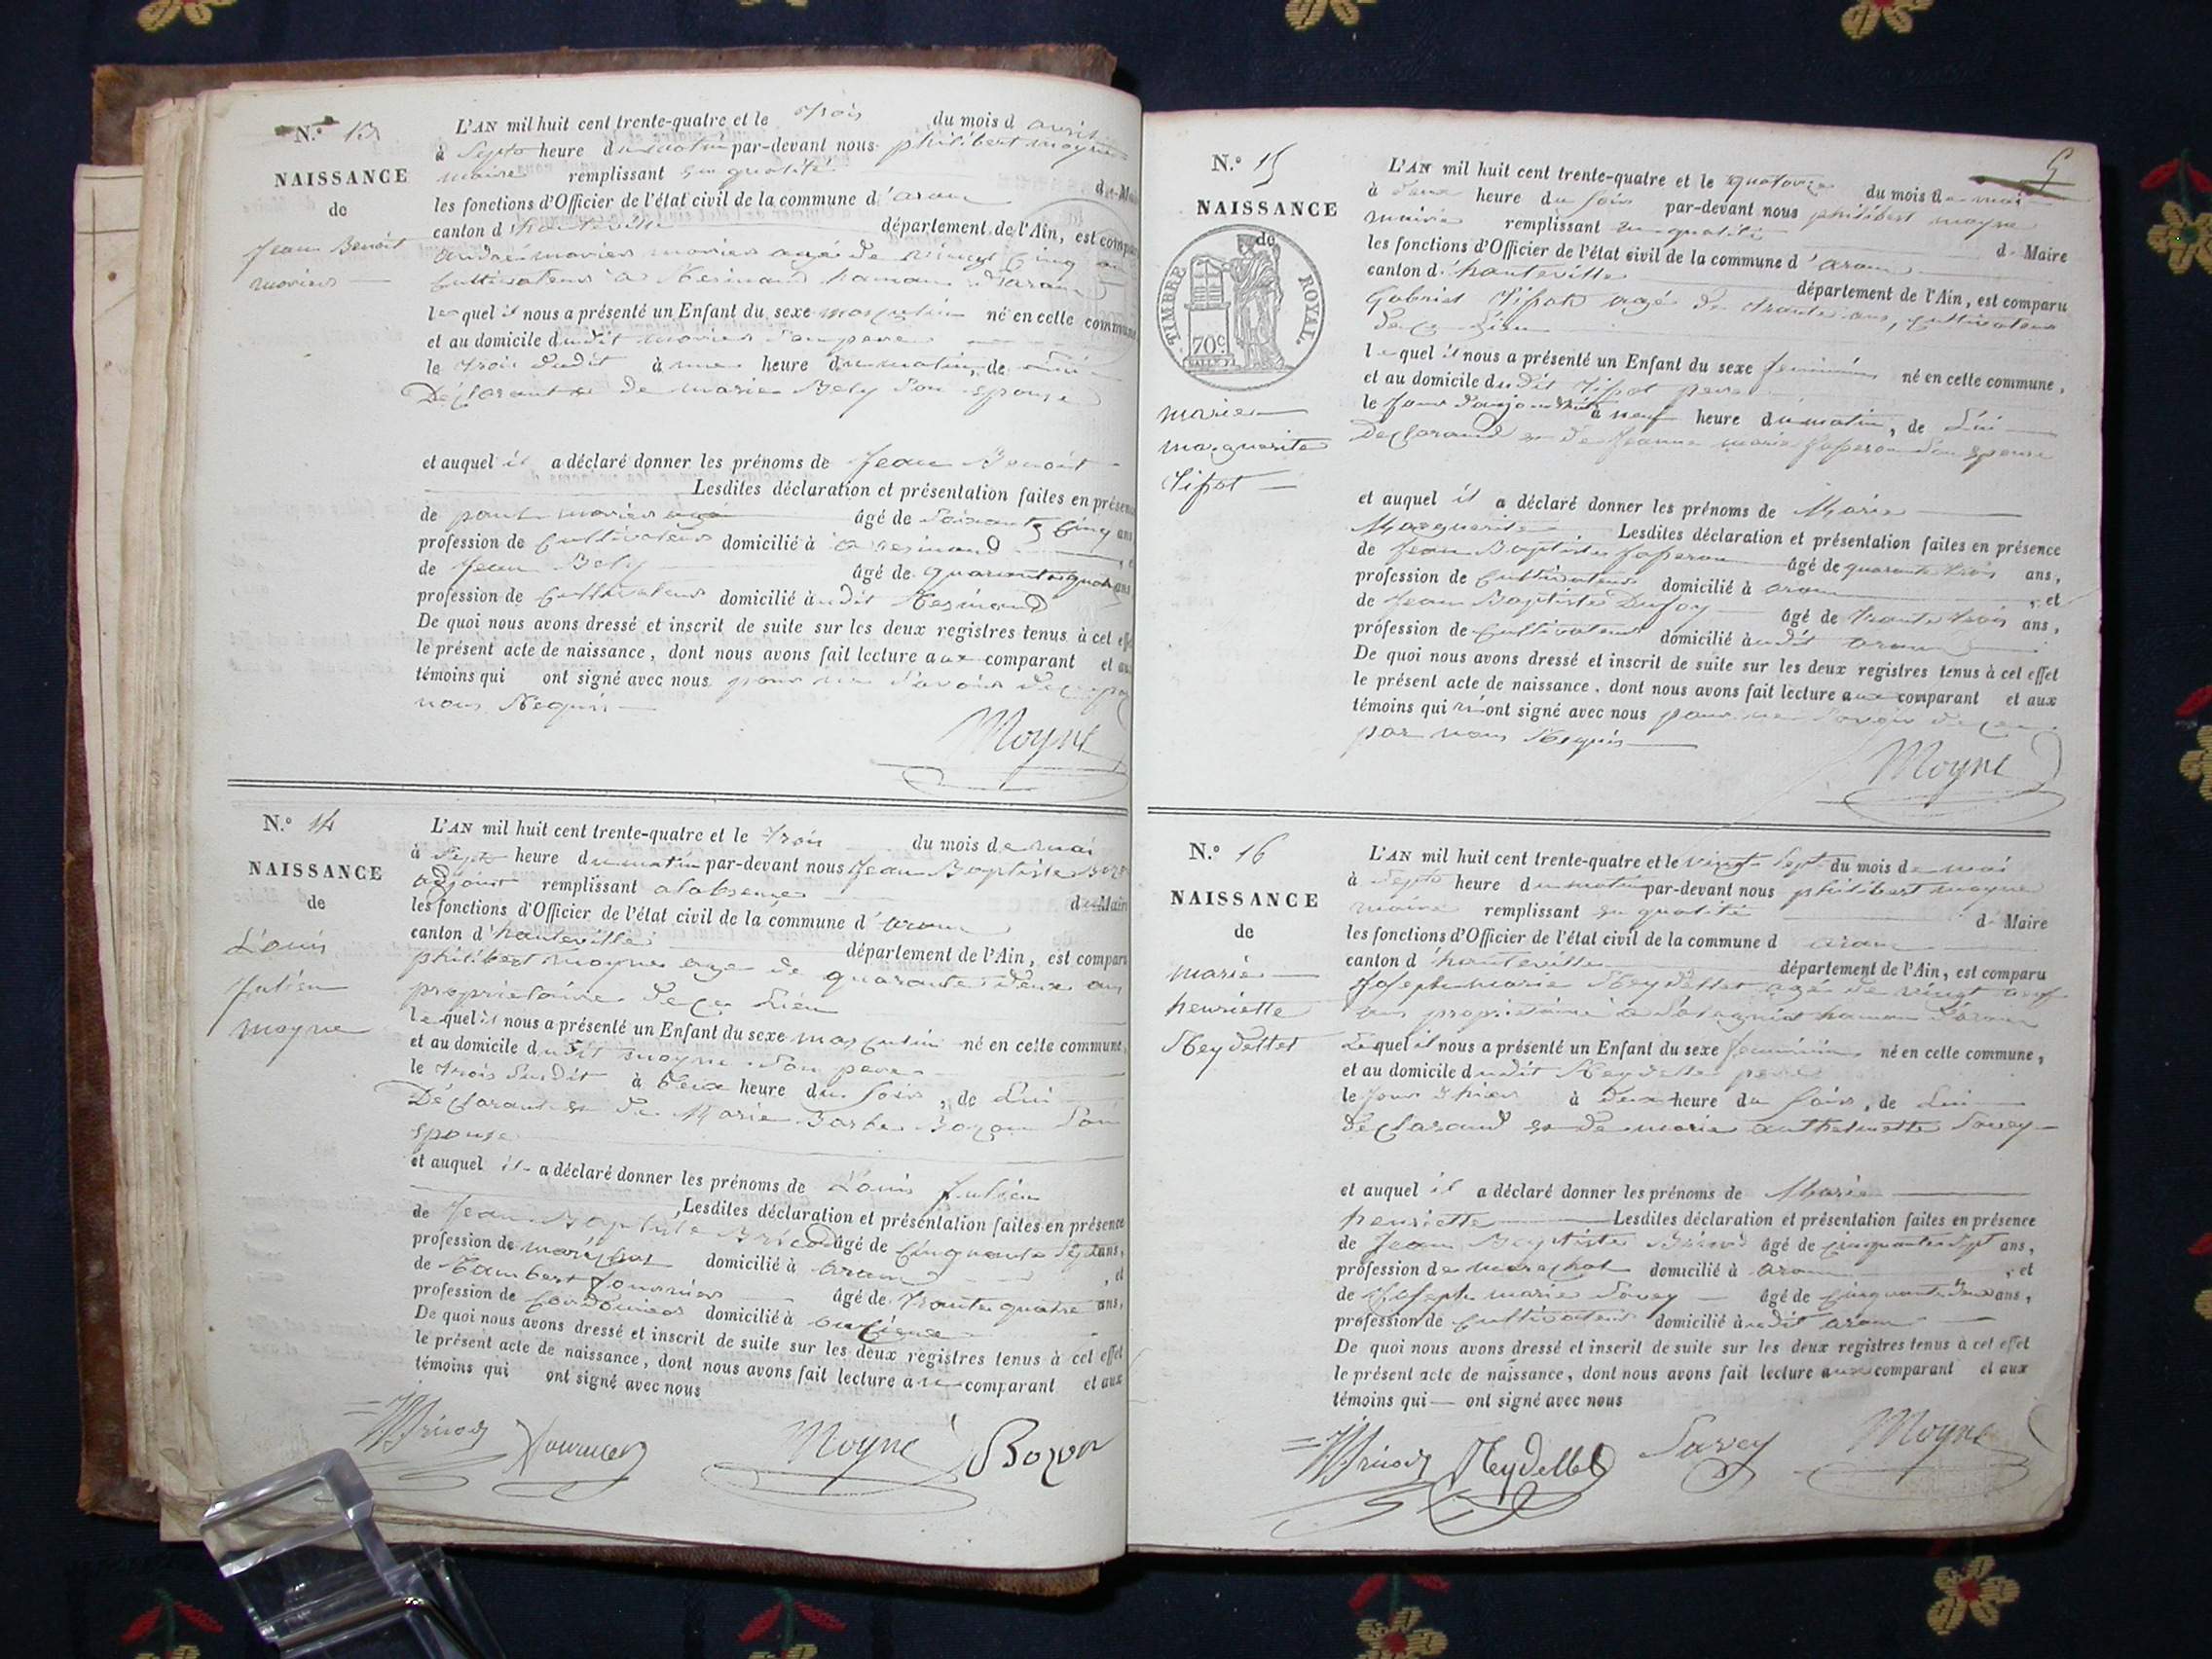 N.º 13
NAISSANCE
de
Jean Benoit
moriers
L'AN mil huit cent trente-quatre et le trois du mois d avril
à Septs heure du matin par-devant nous philibert moyne
maire remplissant en qualité de Maire
les fonctions d'Officier de l'état civil de la commune d'aran
canton d'hauteville département de l'Ain, est comparu
moriers agé de vingt cinq an
Cultivateur à Resinand hamau d'aran
lequel il nous a présenté un Enfant du sexe masculin né en cette commune
et au domicile dudit moriers Son pere
le trois dudit à une heure du matin, de
Déclarant et de marie Bely Son epouse
et auquel il a déclaré donner les prénoms de Jean Benoit
Lesdites déclaration et présentation faites en présence
de moriers âgé de Soixante Cinq ans
profession de Cultivateur domicilié à resinand
de Jean Bely âgé de quarante ans
profession de Cultivateur domicilié à udit Resinand
De quoi nous avons dressé et inscrit de suite sur les deux registres tenus à cet effet
le présent acte de naissance, dont nous avons fait lecture aux comparant et aux
témoins qui ont signé avec nous pour ne Savoir de ce
nous Requis
Moyne
N.º 14
NAISSANCE
de
Louis
Julien
moyne
L'AN mil huit cent trente-quatre et le trois du mois de mai
à Septs heure du matin par-devant nous Jean Baptiste
adjoint remplissant alabsence du Maire
les fonctions d'Officier de l'état civil de la commune d'aran
canton d'hauteville département de l'Ain, est comparu
philibert moyne age de quarante deux ans
proprietaire de ce Lieu
lequel il nous a présenté un Enfant du sexe masculin né en cette commune,
et au domicile dudit moyne Son pere
le trois dudit à heure du Soir, de Lui
Déclarant et de Marie Barbe Bozon Son
epouse
et auquel il a déclaré donner les prénoms de Louis Julien
Lesdites déclaration et présentation faites en présence
de Jean Baptiste âgé de cinquante Sept ans,
profession de maréchal domicilié à aran, et
de âgé de trente quatre ans,
profession de Cordonier domicilié à
De quoi nous avons dressé et inscrit de suite sur les deux registres tenus à cet effet
le présent acte de naissance, dont nous avons fait lecture à comparant et aux
témoins qui ont signé avec nous
Moyne Bozon
5
N.º 15
NAISSANCE
de
TIMBRE ROYAL.
70c
marie
marguerite
Tissot
L'AN mil huit cent trente-quatre et le quatorze du mois de mai
à deux heure du Soir par-devant nous philibert moyne
maire remplissant en qualité de Maire
les fonctions d'Officier de l'état civil de la commune d'aran
canton d'hauteville département de l'Ain, est comparu
Gabriel Tissot agé de trante ans, cultivateur
de ce Lieu
lequel il nous a présenté un Enfant du sexe feminin né en cette commune,
et au domicile dudit Tissot pere
le Jour d'aujourdhui à neuf heure du matin, de Lui
Declarand et de Jeanne marie Son epouse
et auquel il a déclaré donner les prénoms de Marie
Marguerite Lesdites déclaration et présentation faites en présence
de Jean Baptiste âgé de quarante trois ans,
profession de Cultivateur domicilié à aran, et
de Jean Baptiste âgé de trante trois ans,
profession de Cultivateur domicilié à udit aran
De quoi nous avons dressé et inscrit de suite sur les deux registres tenus à cet effet
le présent acte de naissance, dont nous avons fait lecture aux comparant et aux
témoins qui n'ont signé avec nous pour ne Savoir de ce
par nous Requis
Moyne
N.º 16
NAISSANCE
de
marie
henriette
Reydellet
L'AN mil huit cent trente-quatre et le vingt Sept du mois de mai
à Septs heure du matin par-devant nous philibert moyne
maire remplissant en qualité de Maire
les fonctions d'Officier de l'état civil de la commune d aran
canton d'hauteville département de l'Ain, est comparu
Joseph marie Reydellet agé de vingt neuf
ans proprietaire à hamau d'aran
Lequel il nous a présenté un Enfant du sexe feminin né en cette commune,
et au domicile dudit Reydellet pere
le Jour d'hier à deux heure du Soir, de Lui
déclarand et de marie anthelmette Savey
et auquel il a déclaré donner les prénoms de Marie
henriette Lesdites déclaration et présentation faites en présence
de Jean Baptiste âgé de cinquante Sept ans,
profession de marechal domicilié à aran, et
de Joseph marie Savey âgé de cinquante deux ans,
profession de Cultivateur domicilié à udit aran
De quoi nous avons dressé et inscrit de suite sur les deux registres tenus à cet effet
le présent acte de naissance, dont nous avons fait lecture aux comparant et aux
témoins qui ont signé avec nous
Reydellet Savey Moyne